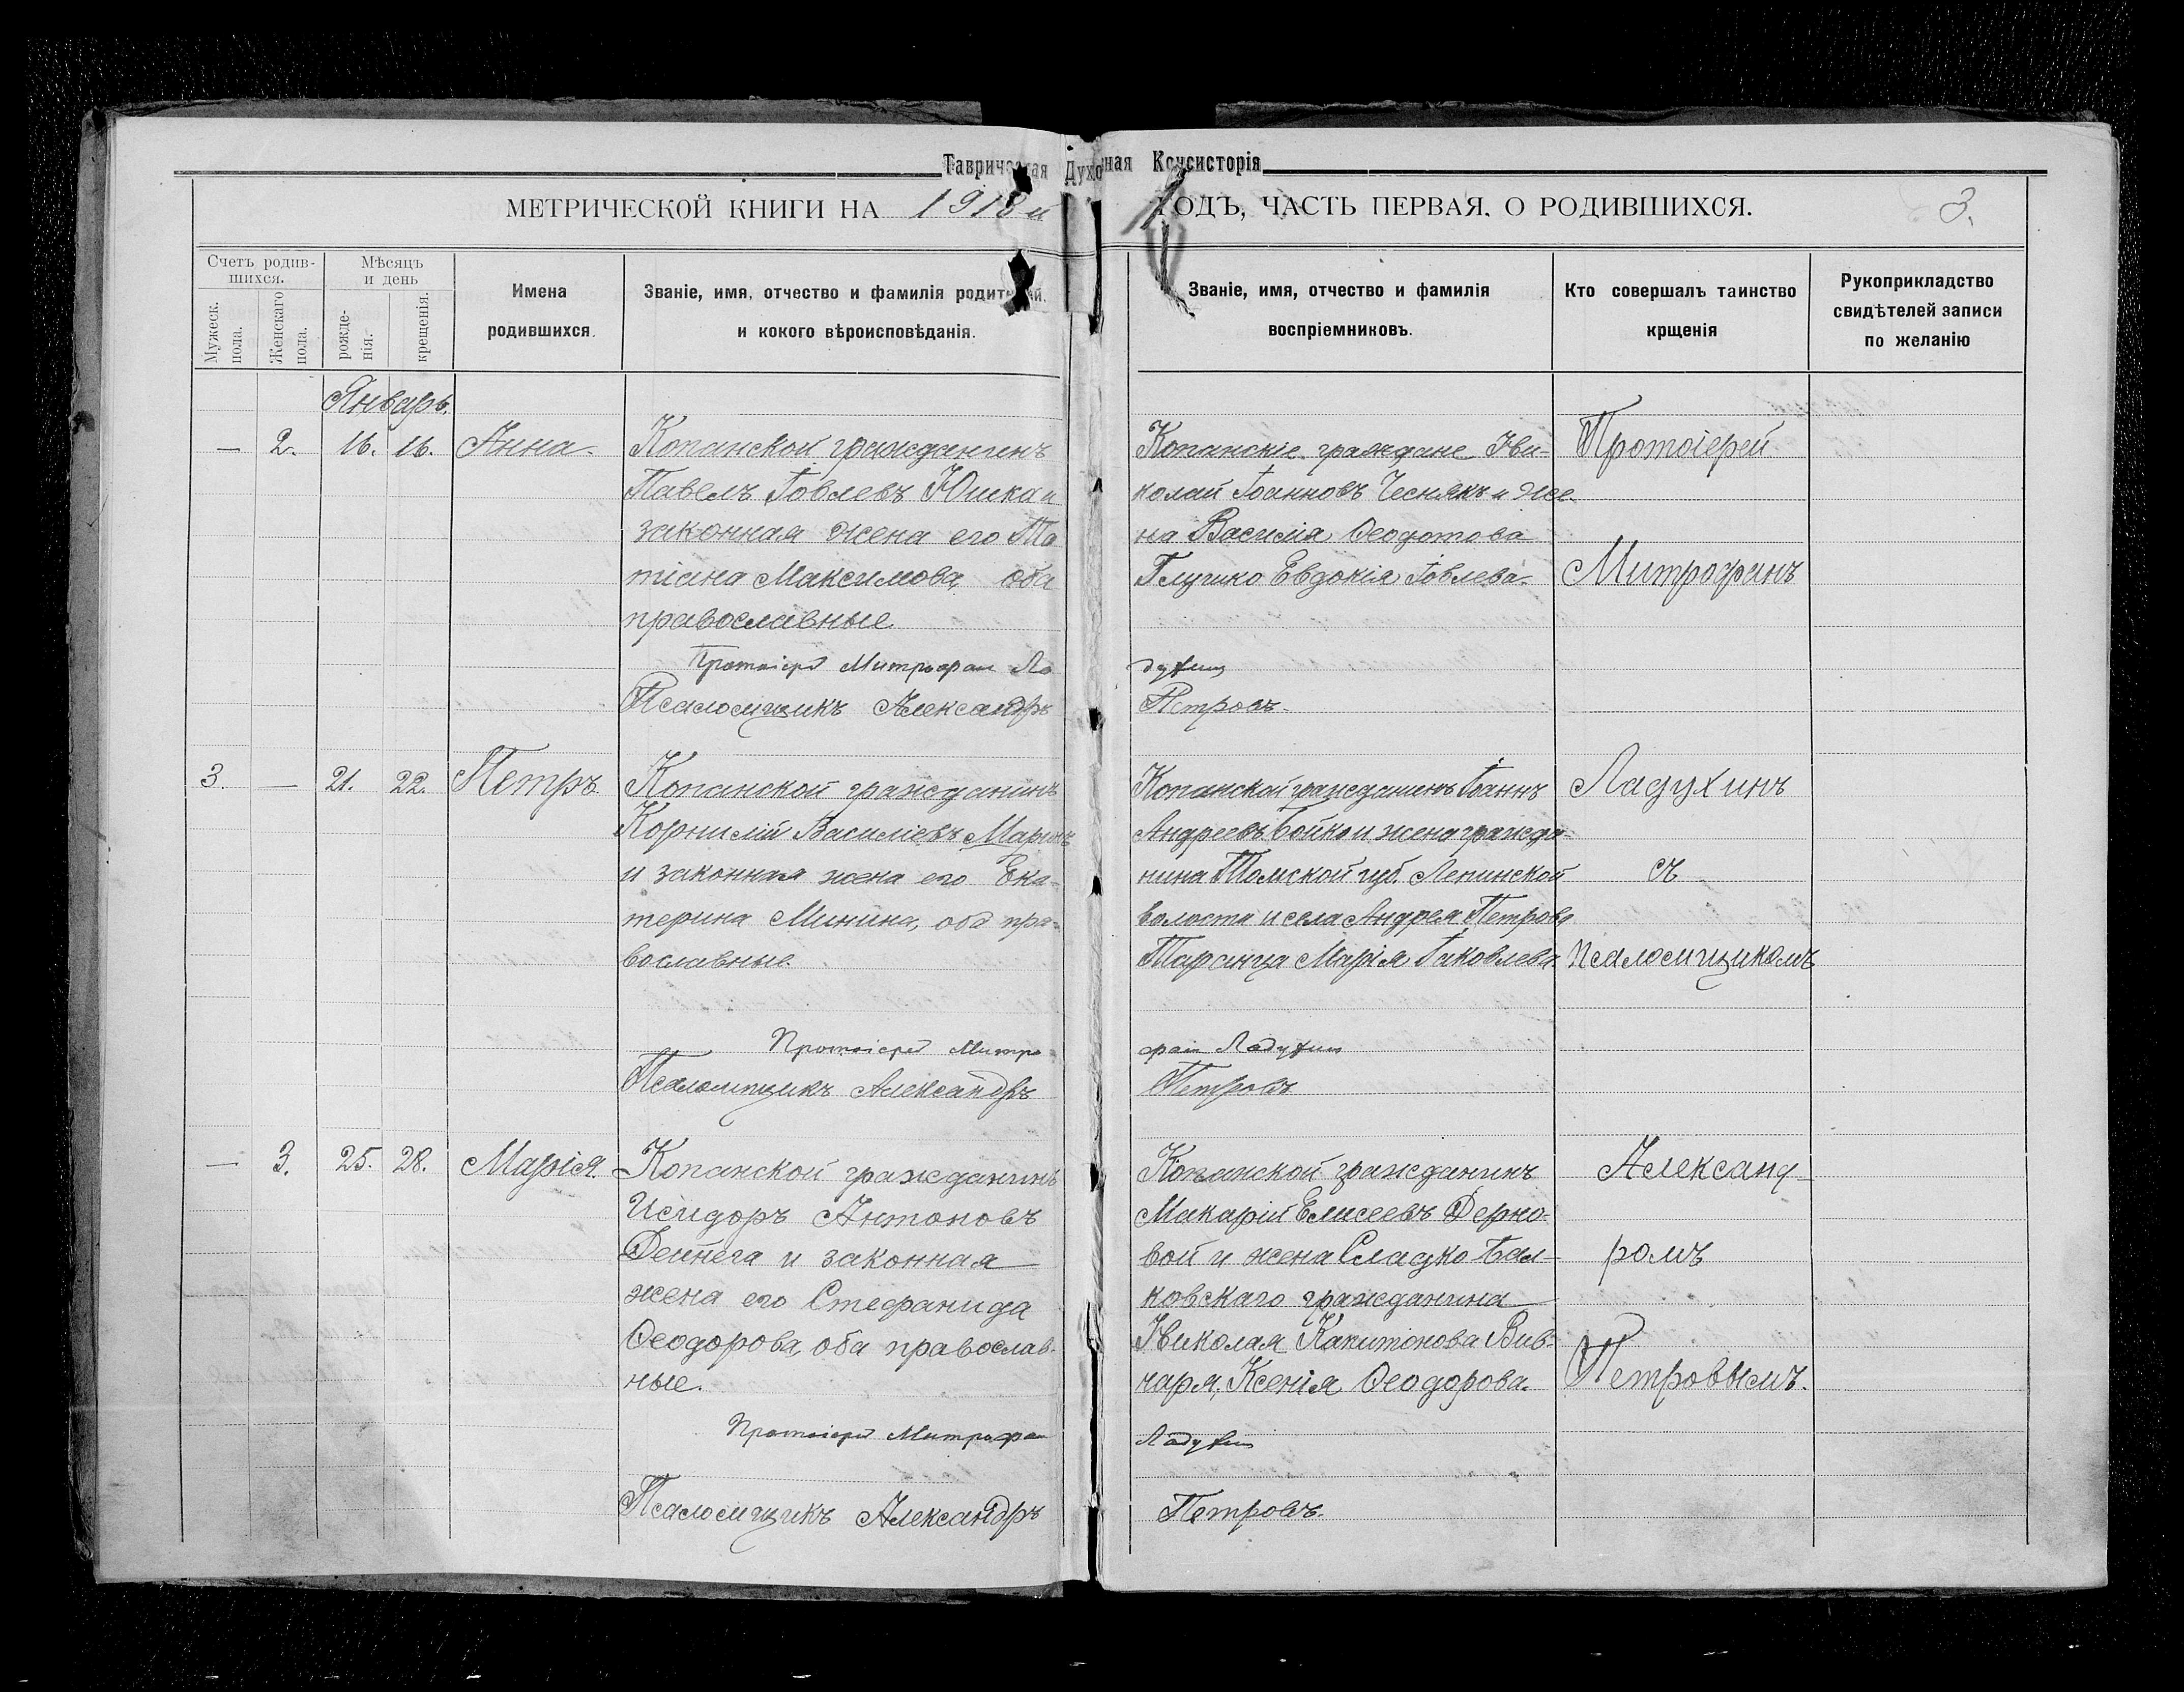 Таврическая Духовная Консисторія
МЕТРИЧЕСКОЙ КНИГИ НА 1918й ГОДЪ, ЧАСТЬ ПЕРВАЯ. О РОДИВШИХСЯ. 3.
Счетъ родив-
шихся.
Мужеск.
пола.
Женскаго
пола.
Мѣсяцъ
и день
рожде-
нія.
крещенія.
Имена
родившихся.
Званіе, имя, отчество и фамилія родителей.
и кокого вѣроисповѣданія.
Званіе, имя, отчество и фамилія
воспріемниковъ.
Кто совершалъ таинство
крщенія
Рукоприкладство
свидѣтелей записи
по желанію
Январь.
— 2. 16. 16. Анна.
Копанской гражданинъ
Павелъ Іовлевъ Юшка и
законная жена его Та
тіана Максимова, оба
православные
Протоіерей Митрофан Ла
Псаломщикъ Александръ
Копанскіе граждане Ни-
колай Іоанновъ Чеснякъ и же-
на Василія Ѳеодотова
Глушко Евдокія Іовлева.
духин
Петровъ.
3. — 21. 22. Петръ
Копанской гражданинъ
Корнилій Василіевъ Маринъ
и законная жена его Ека-
терина Минина, оба пра-
вославные.
Протоіерей Митро-
Псаломщикъ Александръ
Копанской гражданинъ Іоаннъ
Андреевъ Бойко и жена гражда-
нина Томской губ. Лепинской
волости и села Андрея Петрова
Таранца Марія Іаковлева
фан Ладухин
Петровъ
— 3. 25. 28. Марія.
Копанской гражданинъ
Исидоръ Антоновъ
Деннега и законная
жена его Стефанида
Ѳеодорова, оба православ-
ные.
Протоіерей Митрофан
Псаломщикъ Александръ
Копанской гражданинъ
Макарій Елисеевъ Дерно-
вой и жена Сладко-Бал-
ковскаго гражданина
Николая Капитонова Вив-
чаря, Ксенія Ѳеодорова.
Ладухин
Петровъ.
Протоіерей
Митрофанъ
Ладухинъ
съ
псаломщикомъ
Александ-
ромъ
Петровымъ.